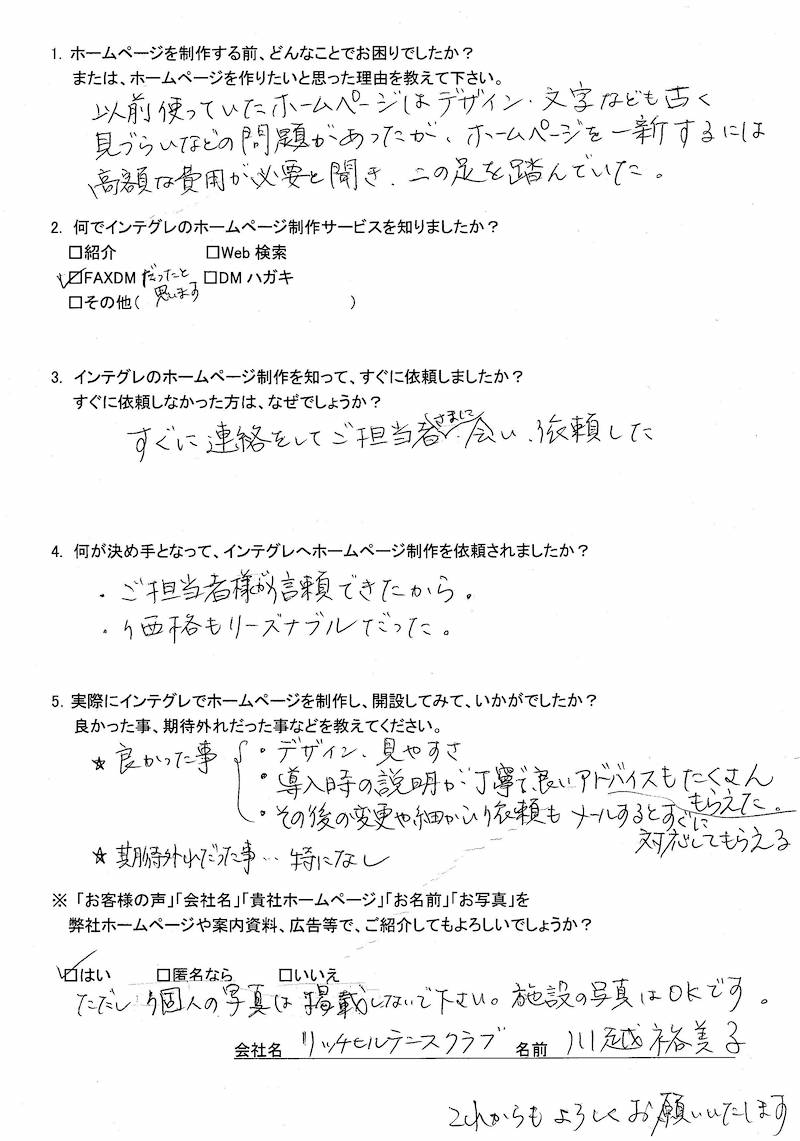 1. ホームページを制作する前、どんなことでお困りでしたか？
または、ホームページを作りたいと思った理由を教えて下さい。
以前使っていたホームページはデザイン・文字なども古く
見づらいなどの問題があったが、ホームページを一新するには
高額な費用が必要と聞き、二の足を踏んでいた。
2. 何でインテグレのホームページ制作サービスを知りましたか？
□紹介 □Web 検索
☑FAXDM だったと思います □DM ハガキ
□その他( )
3. インテグレのホームページ制作を知って、すぐに依頼しましたか？
すぐに依頼しなかった方は、なぜでしょうか？
すぐに連絡をしてご担当者さまに会い、依頼した
4. 何が決め手となって、インテグレへホームページ制作を依頼されましたか？
・ご担当者様が信頼できたから。
・価格もリーズナブルだった。
5. 実際にインテグレでホームページを制作し、開設してみて、いかがでしたか？
良かった事、期待外れだった事などを教えてください。
☆良かった事 ・デザイン、見やすさ
・導入時の説明が丁寧で、良いアドバイスもたくさんもらえた。
・その後の変更や細かい依頼もメールするとすぐに
対応してもらえる
☆期待外れだった事…特になし
※「お客様の声」「会社名」「貴社ホームページ」「お名前」「お写真」を
弊社ホームページや案内資料、広告等で、ご紹介してもよろしいでしょうか？
☑はい □匿名なら □いいえ
ただし個人の写真は掲載しないで下さい。施設の写真はOKです。
会社名 リッチヒルテニスクラブ 名前 川越裕美子
これからもよろしくお願いいたします